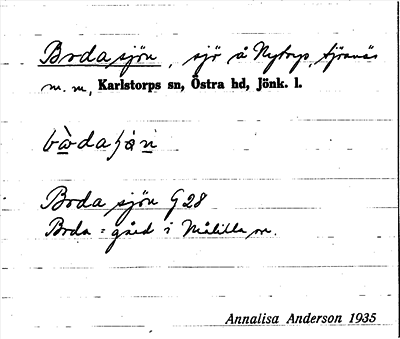 Bodasjön, sjö å Nytorp, Sjöanäs
m. m, Karlstorps sn, Östra hd, Jönk. l.
Boda sjön G28
Boda = gård i Målilla sn.
Annalisa Anderson 1935